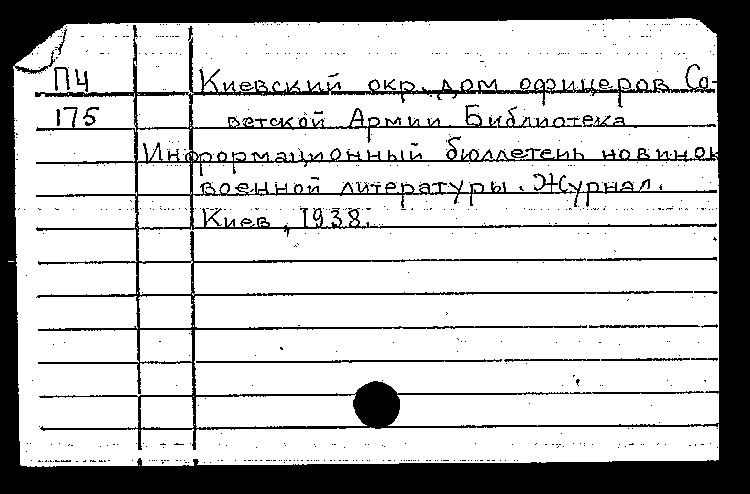 ПЧ Киевский окр. дом офицеров Со-
175 ветской Армии Библиотека
Информационный бюллетень новинок
военной литературы. Журнал.
Киев, 1938.